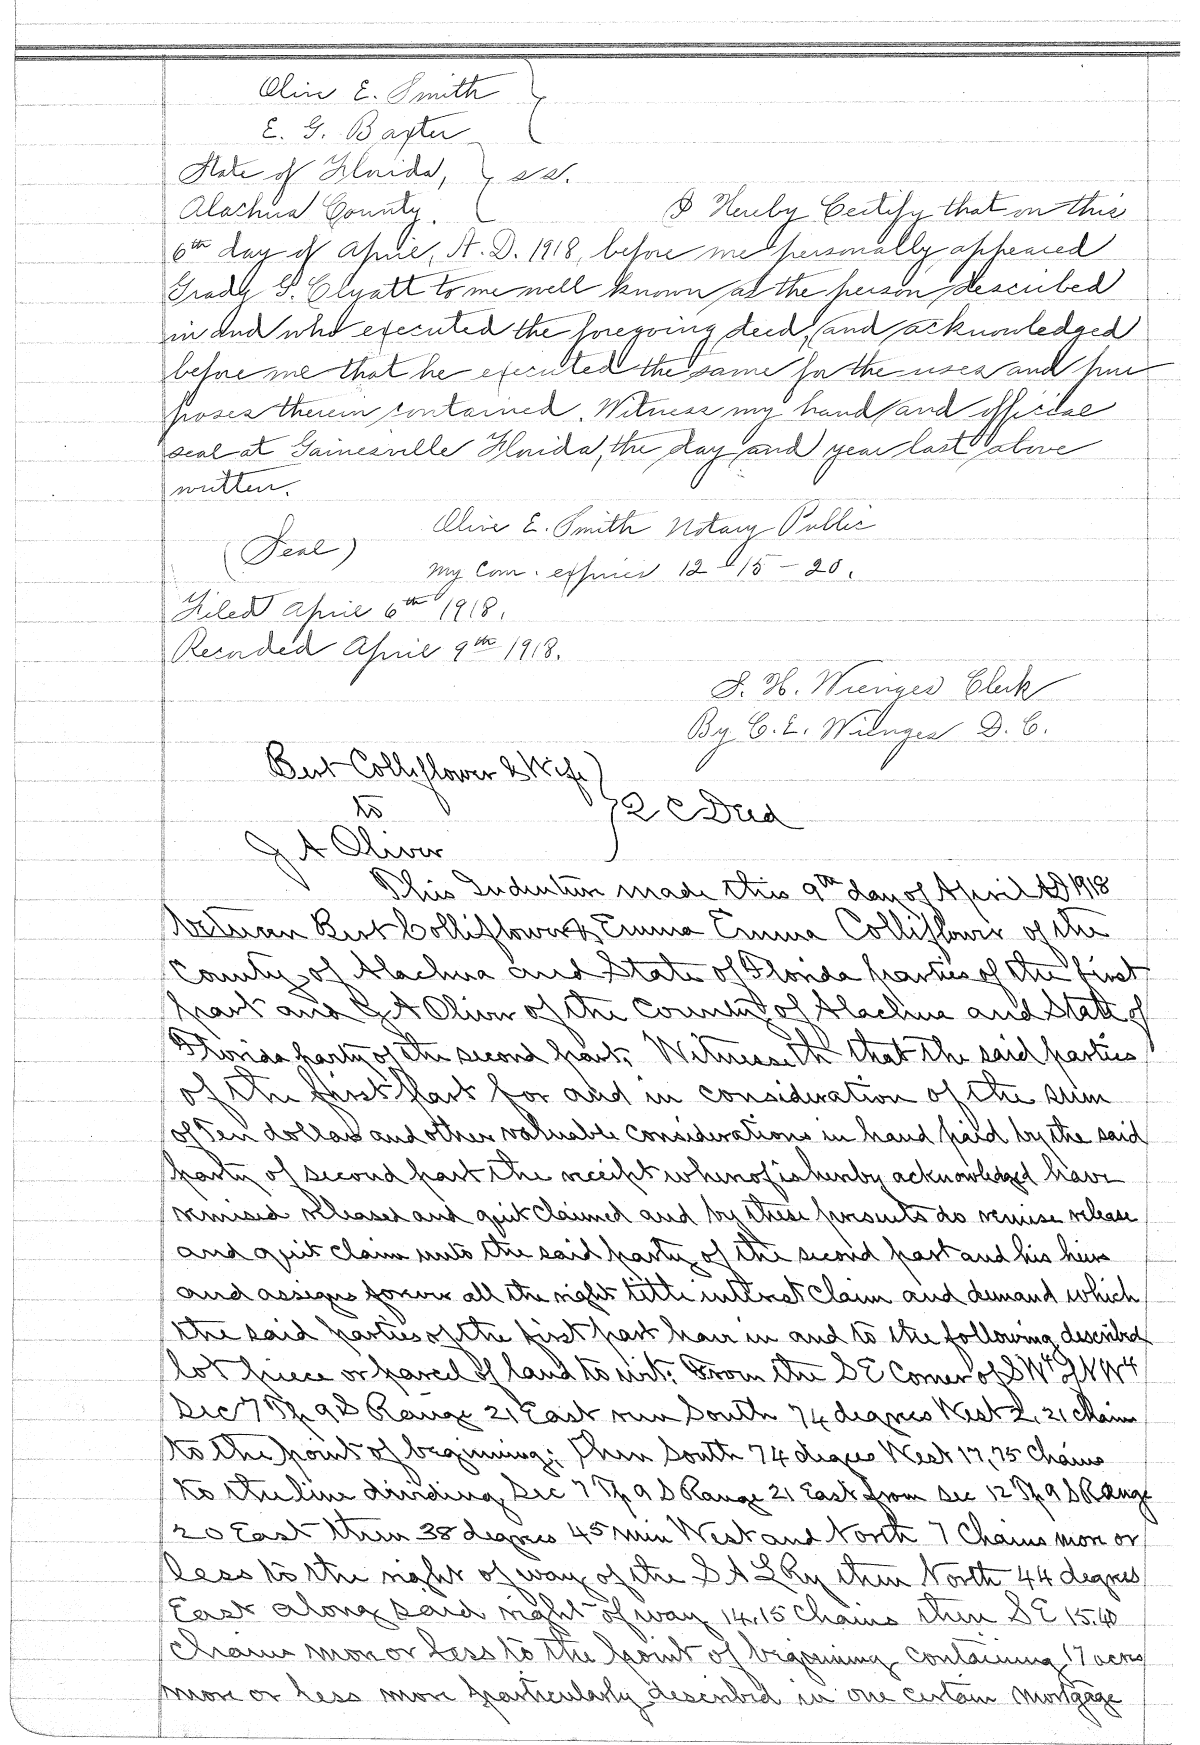 Olive E. Smith
E. G. Baxter
State of Florida, } ss.
Alachua County. I Hereby Certify that on this
6th day of April, A. D. 1918, before me personally appeared
Grady S. Clyatt to me well known as the person described
in and who executed the foregoing deed, and acknowledged
before me that he executed the same for the uses and pur
poses therein contained. Witness my hand and official
seal at Gainesville Florida, the day and year last above
written.
Olive E. Smith Notary Public
(Seal) My Com. expires 12-15-20.
Filed April 6th 1918.
Recorded April 9th 1918.
S. H. Wienges Clerk
By C. E. Wienges D. C.
Bert Colliflower & Wife
to } Q C Deed
J A Oliver
This Indenture made this 9th day of April AD 1918
between Bert Colliflower & Emma Emma Colliflower of the
County of Alachua and State of Florida parties of the first
part and J A Oliver of the County of Alachua and State of
Florida party of the second part, Witnesseth that the said parties
of the first part for and in consideration of the sum
of Ten dollars and other valuable considerations in hand paid by the said
party of second part the receipt whereof is hereby acknowledged have
remised released and quit claimed and by these presents do remise release
and quit claim unto the said party of the second part and his heirs
and assigns forever all the right title interest claim and demand which
the said parties of the first part have in and to the following described
lot piece or parcel of land to wit: From the SE Corner of SW4 of NW4
Sec 7 Tp 9 S Range 21 East run South 74 degrees West 2.21 chains
to the point of beginning; Then South 74 degrees West 17.75 Chains
to the line dividing Sec 7 Tp 9 S Range 21 East from Sec 12 Tp 9 S Range
20 East then 38 degrees 45 min West and North 7 Chains more or
less to the right of way of the S A L Ry then North 44 degrees
East along said right of way 14.15 Chains then SE 15.40
Chains more or less to the point of beginning containing 17 acres
more or less more particularly described in one certain mortgage